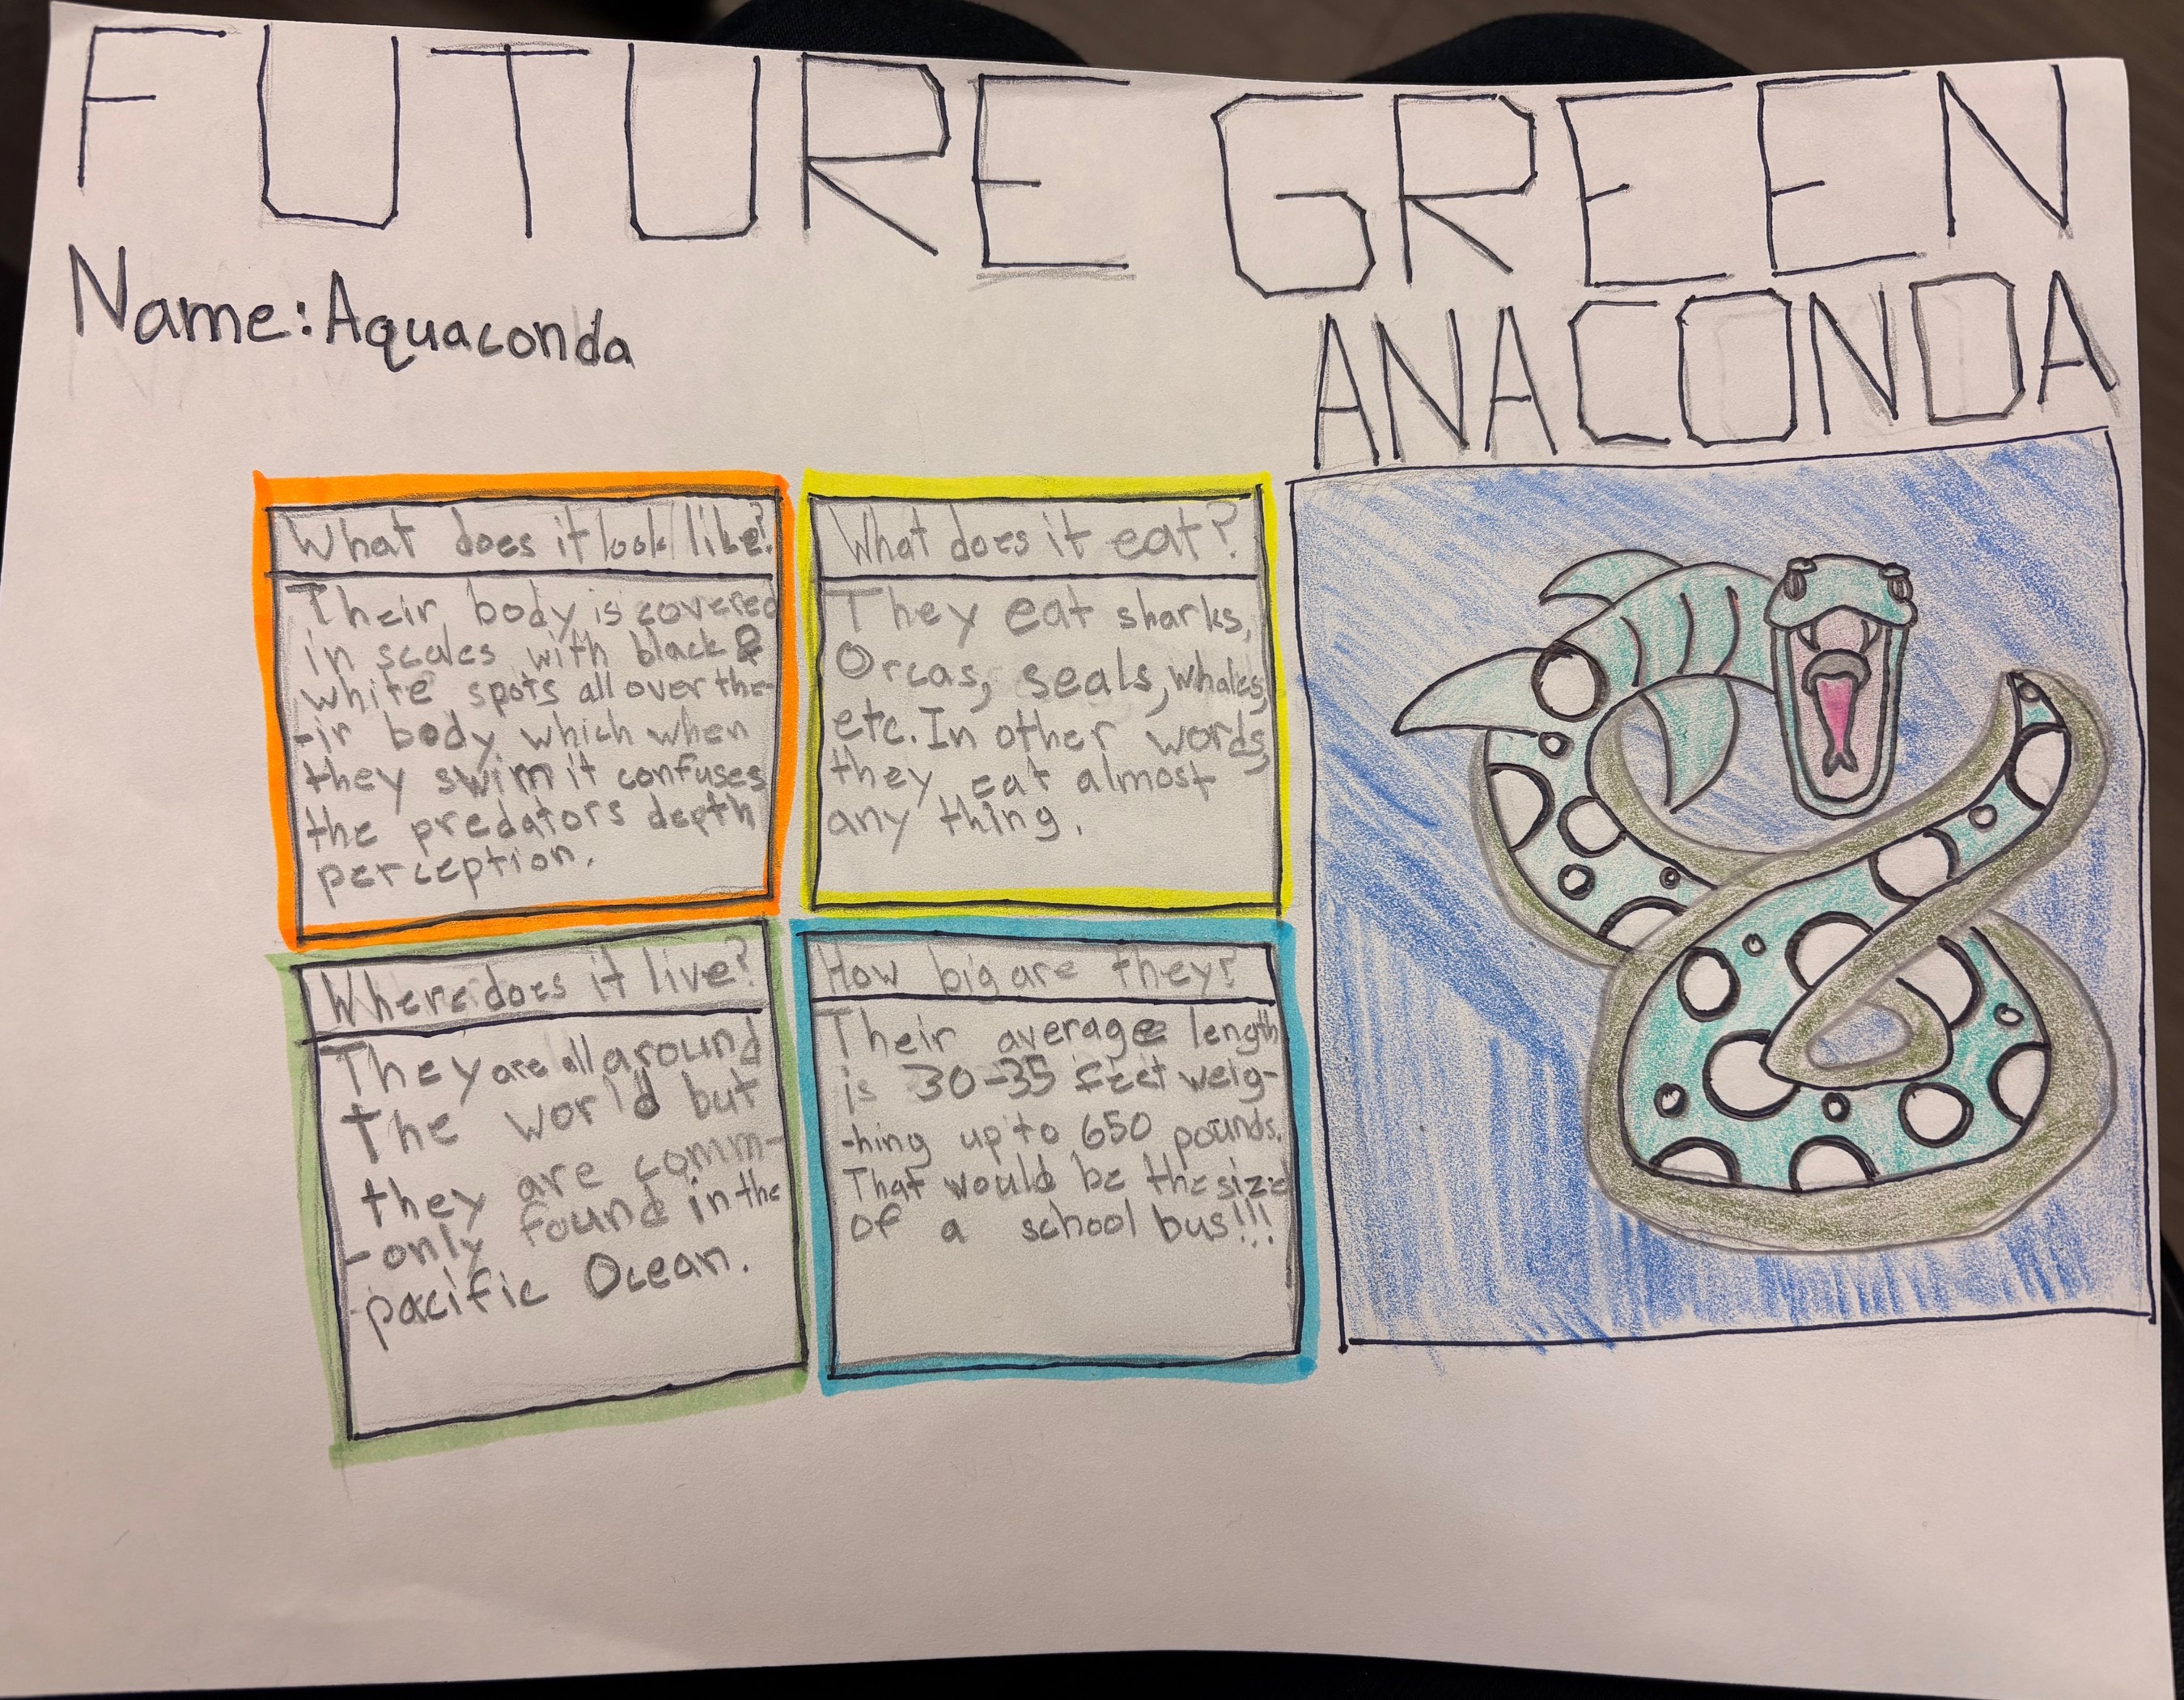 FUTURE GREEN
ANACONDA
Name: Aquaconda
What does it look like?
Their body is covered
in scales with black &
white spots all over the-
-ir body which when
they swim it confuses
the predators depth
perception.
What does it eat?
They eat sharks,
Orcas, seals, whales,
etc. In other words,
they eat almost
any thing.
Where does it live?
They are all around
the world but
they are comm-
-only found in the
pacific Ocean.
How big are they?
Their average length
is 30-35 feet weig-
-hing up to 650 pounds.
That would be the size
of a school bus!!!